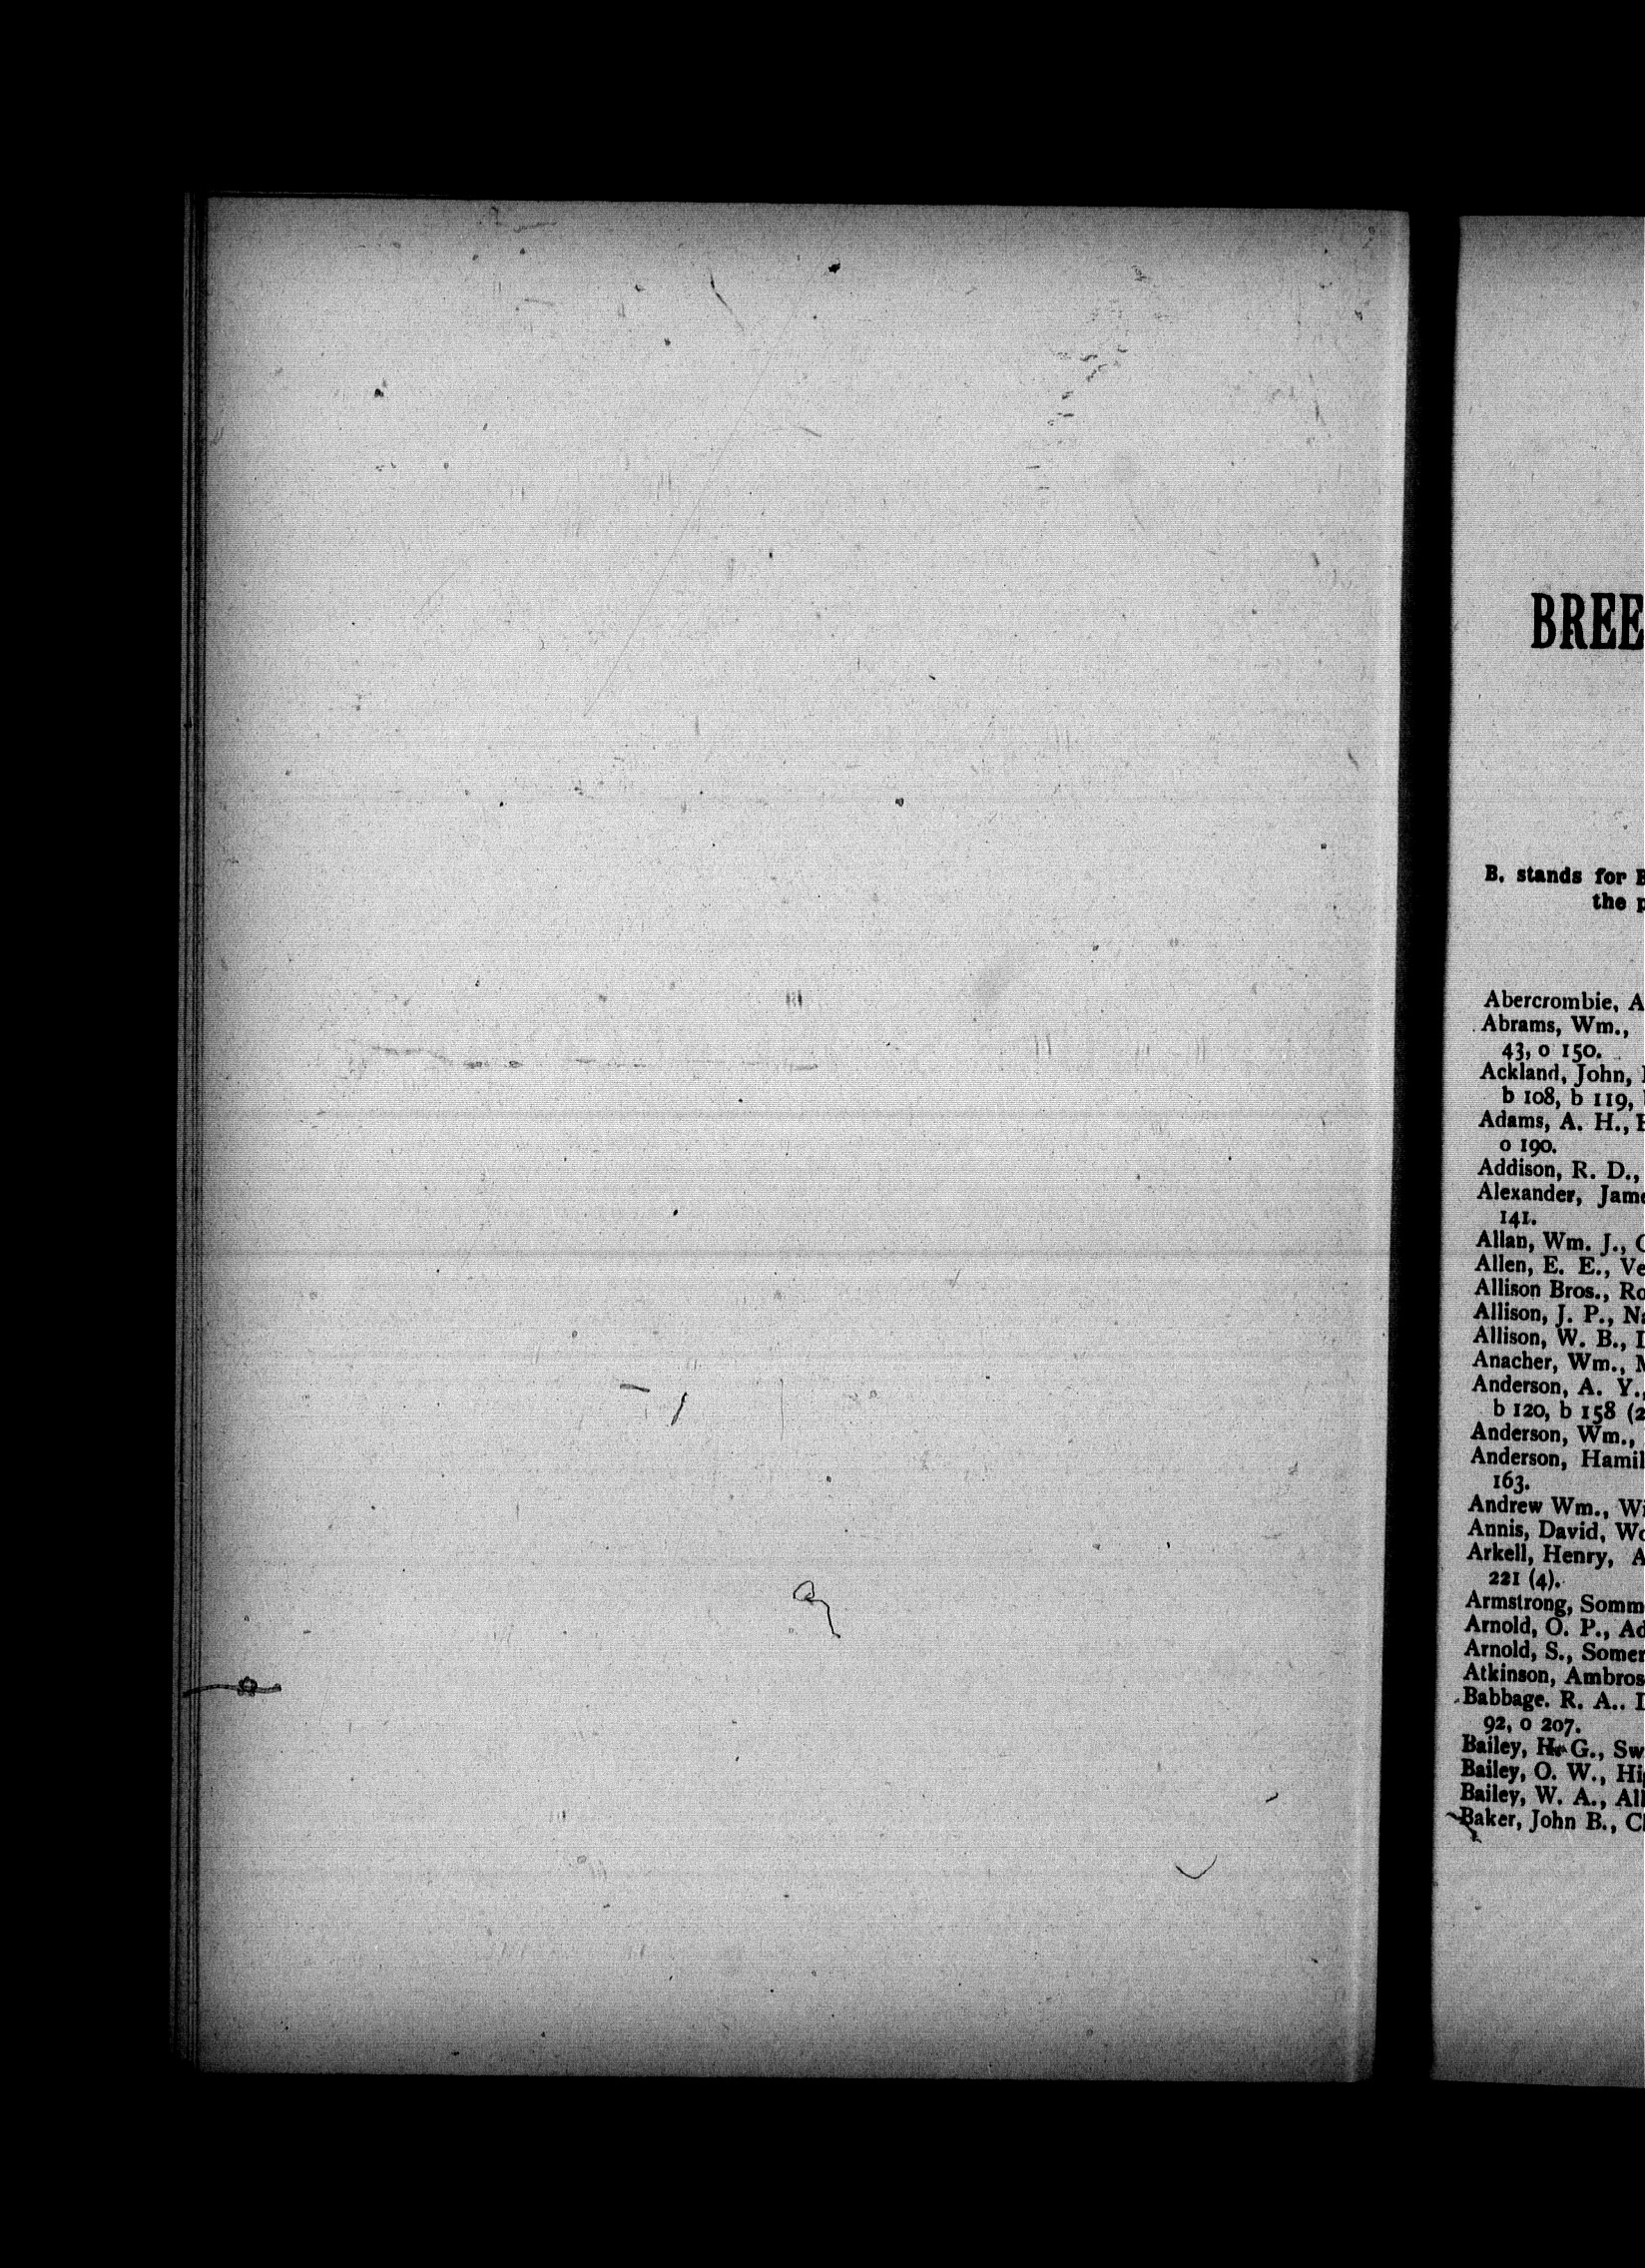 BREE
B. stands for B
the p
Abercrombie, A
Abrams, Wm.,
43, o 150.
Ackland, John,
b 108, b 119,
Adams, A. H.,
o 190.
Addison, R. D.,
Alexander, Jame
141.
Allan, Wm. J., C
Allen, E. E., Ve
Allison Bros., Ro
Allison, J. P., Na
Allison, W. B., D
Anacher, Wm., M
Anderson, A. Y.,
b 120, b 158 (2
Anderson, Wm.,
Anderson, Hamil
163.
Andrew Wm., Wi
Annis, David, Wo
Arkell, Henry, A
221 (4).
Armstrong, Somm
Arnold, O. P., Ad
Arnold, S., Somer
Atkinson, Ambros
Babbage. R. A.. D
92, o 207.
Bailey, H. G., Sw
Bailey, O. W., Hi
Bailey, W. A., All
Baker, John B., Cl